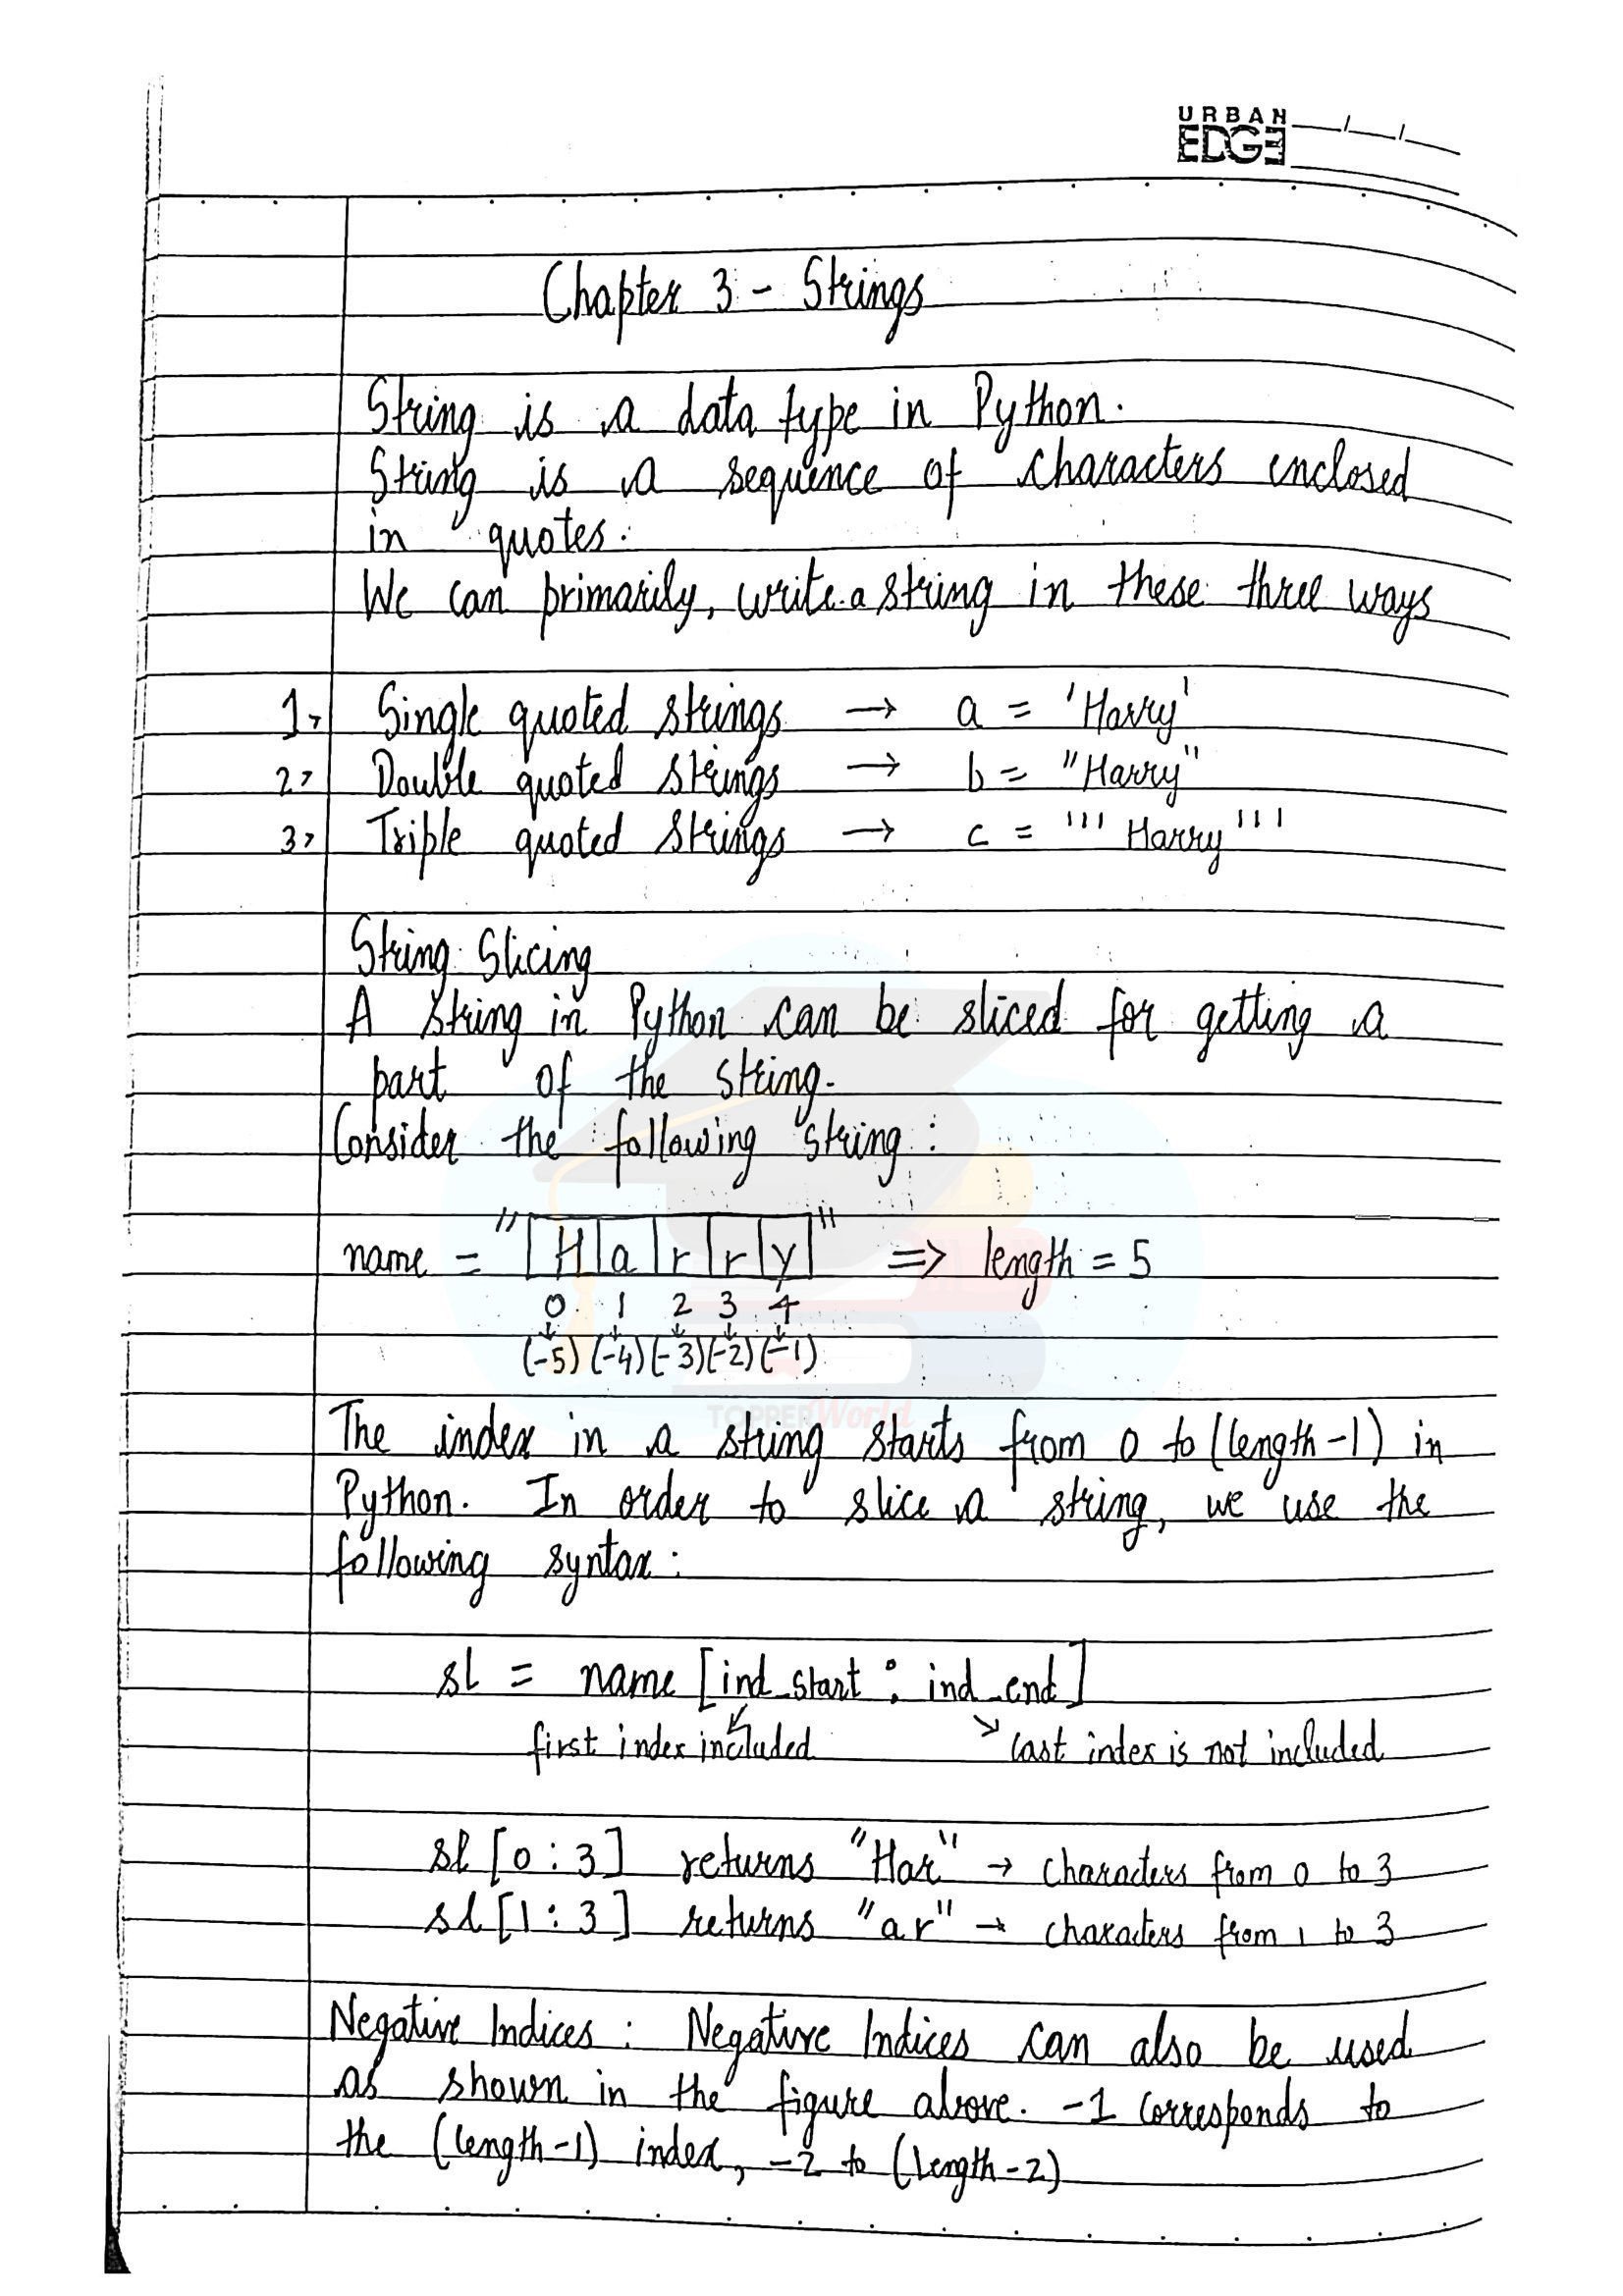 URBAN
EDGE
Chapter 3 - Strings
String is a data type in Python.
String is a sequence of characters enclosed
in quotes.
We can primarily, write a string in these three ways
1> Single quoted strings → a = 'Harry'
2> Double quoted strings → b = "Harry"
3> Triple quoted strings → c = '''Harry'''
String Slicing
A string in Python can be sliced for getting a
part of the string.
Consider the following string :
name = "|H|a|r|r|y|" => length = 5
0 1 2 3 4
(-5) (-4) (-3) (-2) (-1)
TOPPERWorld
The index in a string starts from 0 to (length-1) in
Python. In order to slice a string, we use the
following syntax :
sl = name [ind_start : ind_end]
first index included last index is not included
sl [0 : 3] returns "Har" → characters from 0 to 3
sl [1 : 3] returns "ar" → characters from 1 to 3
Negative Indices : Negative Indices can also be used
as shown in the figure above. -1 corresponds to
the (length-1) index, -2 to (length-2)